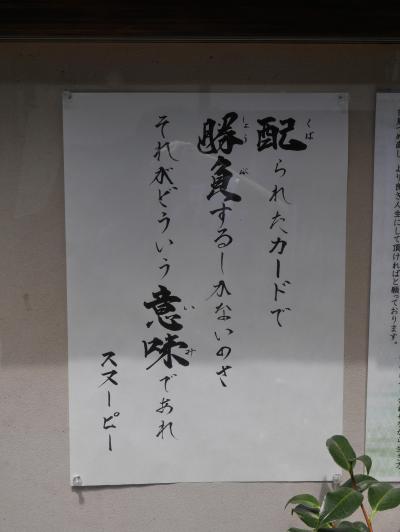 配られたカードで
勝負するしかないのさ
それがどういう意味であれ
スヌーピー
より良き人生にして頂ければと願っております。